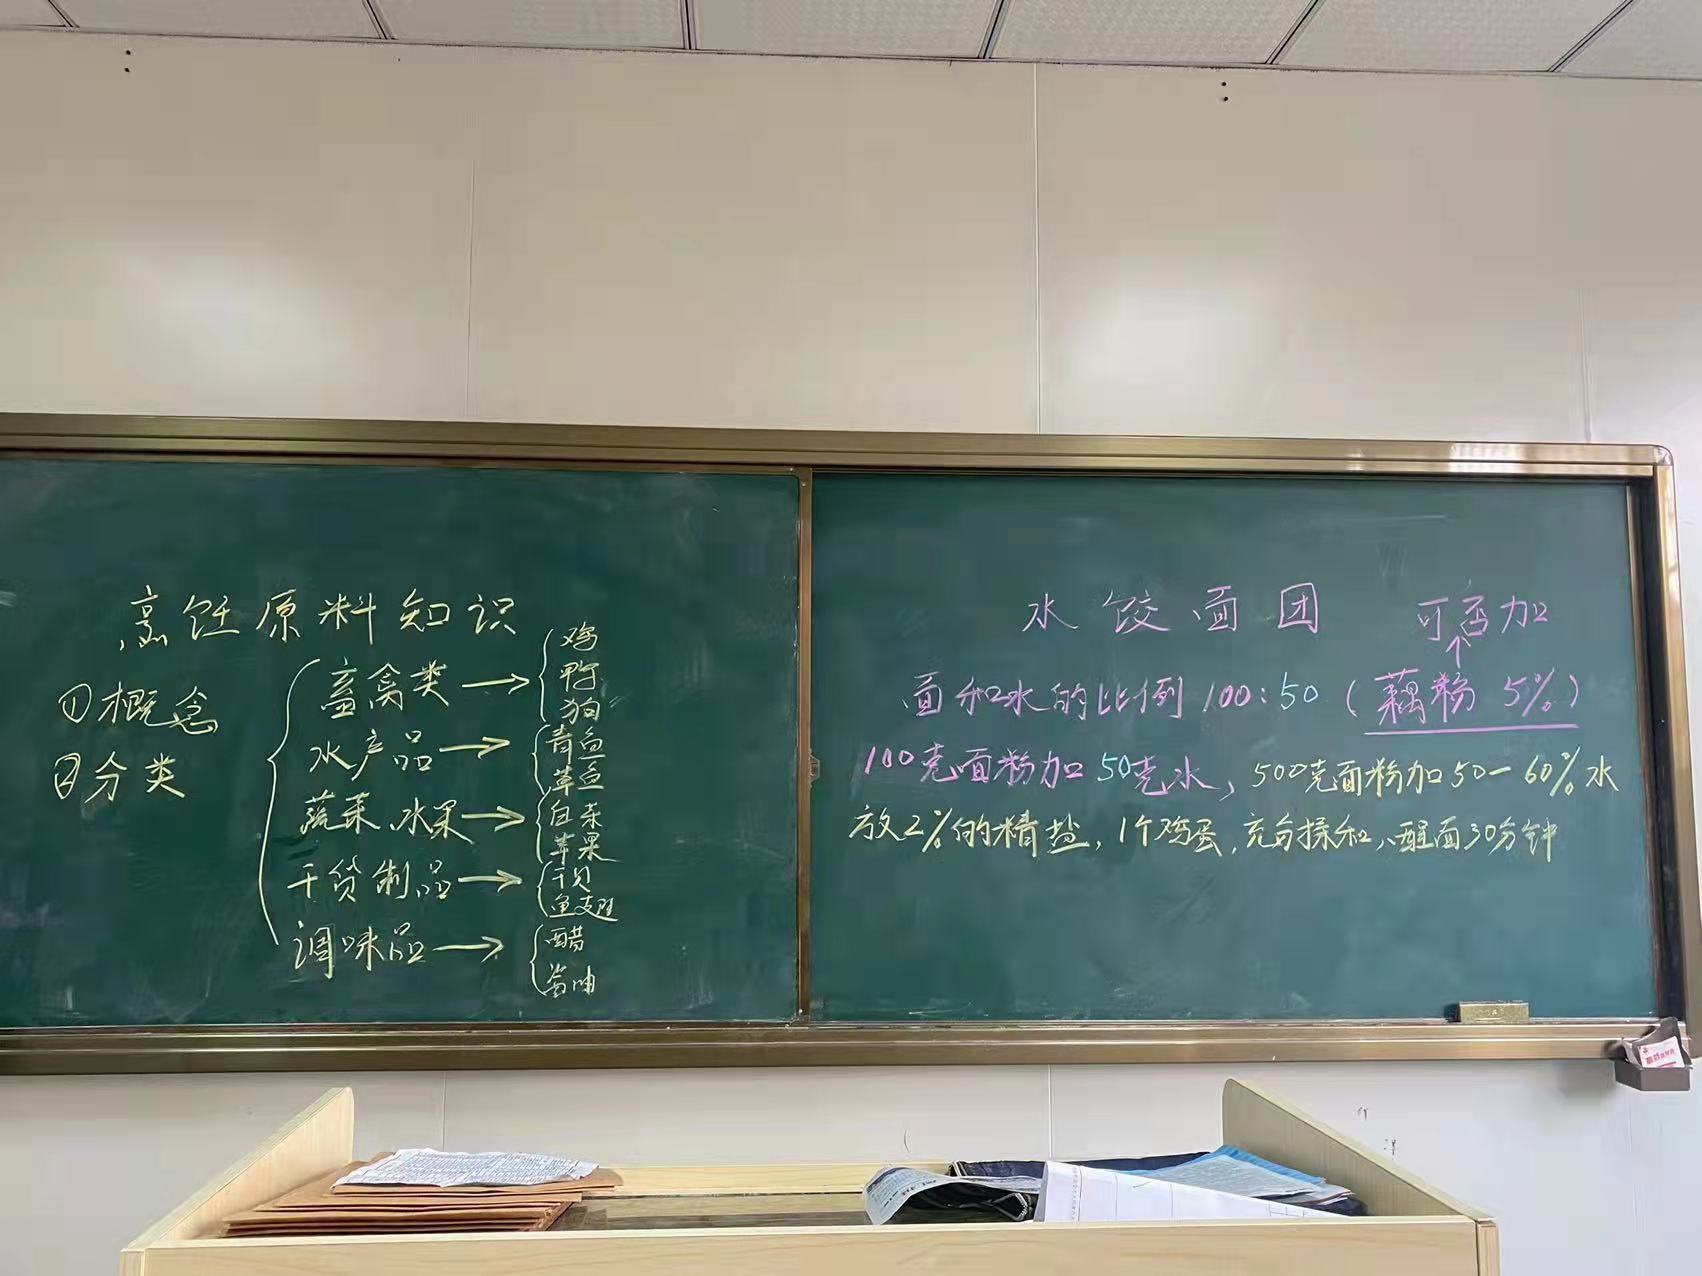 烹饪原料知识
①概念
②分类
畜禽类→
鸡
鸭
狗
水产品→
青鱼
草鱼
蔬菜、水果→
白菜
苹果
干货制品→
干贝
鱼翅
调味品→
醋
酱油
水饺面团
可否加
面和水的比例100:50(藕粉 5%)
100克面粉加50克水,500克面粉加50-60%水
放2%的精盐,1个鸡蛋,充分揉和、醒面30分钟